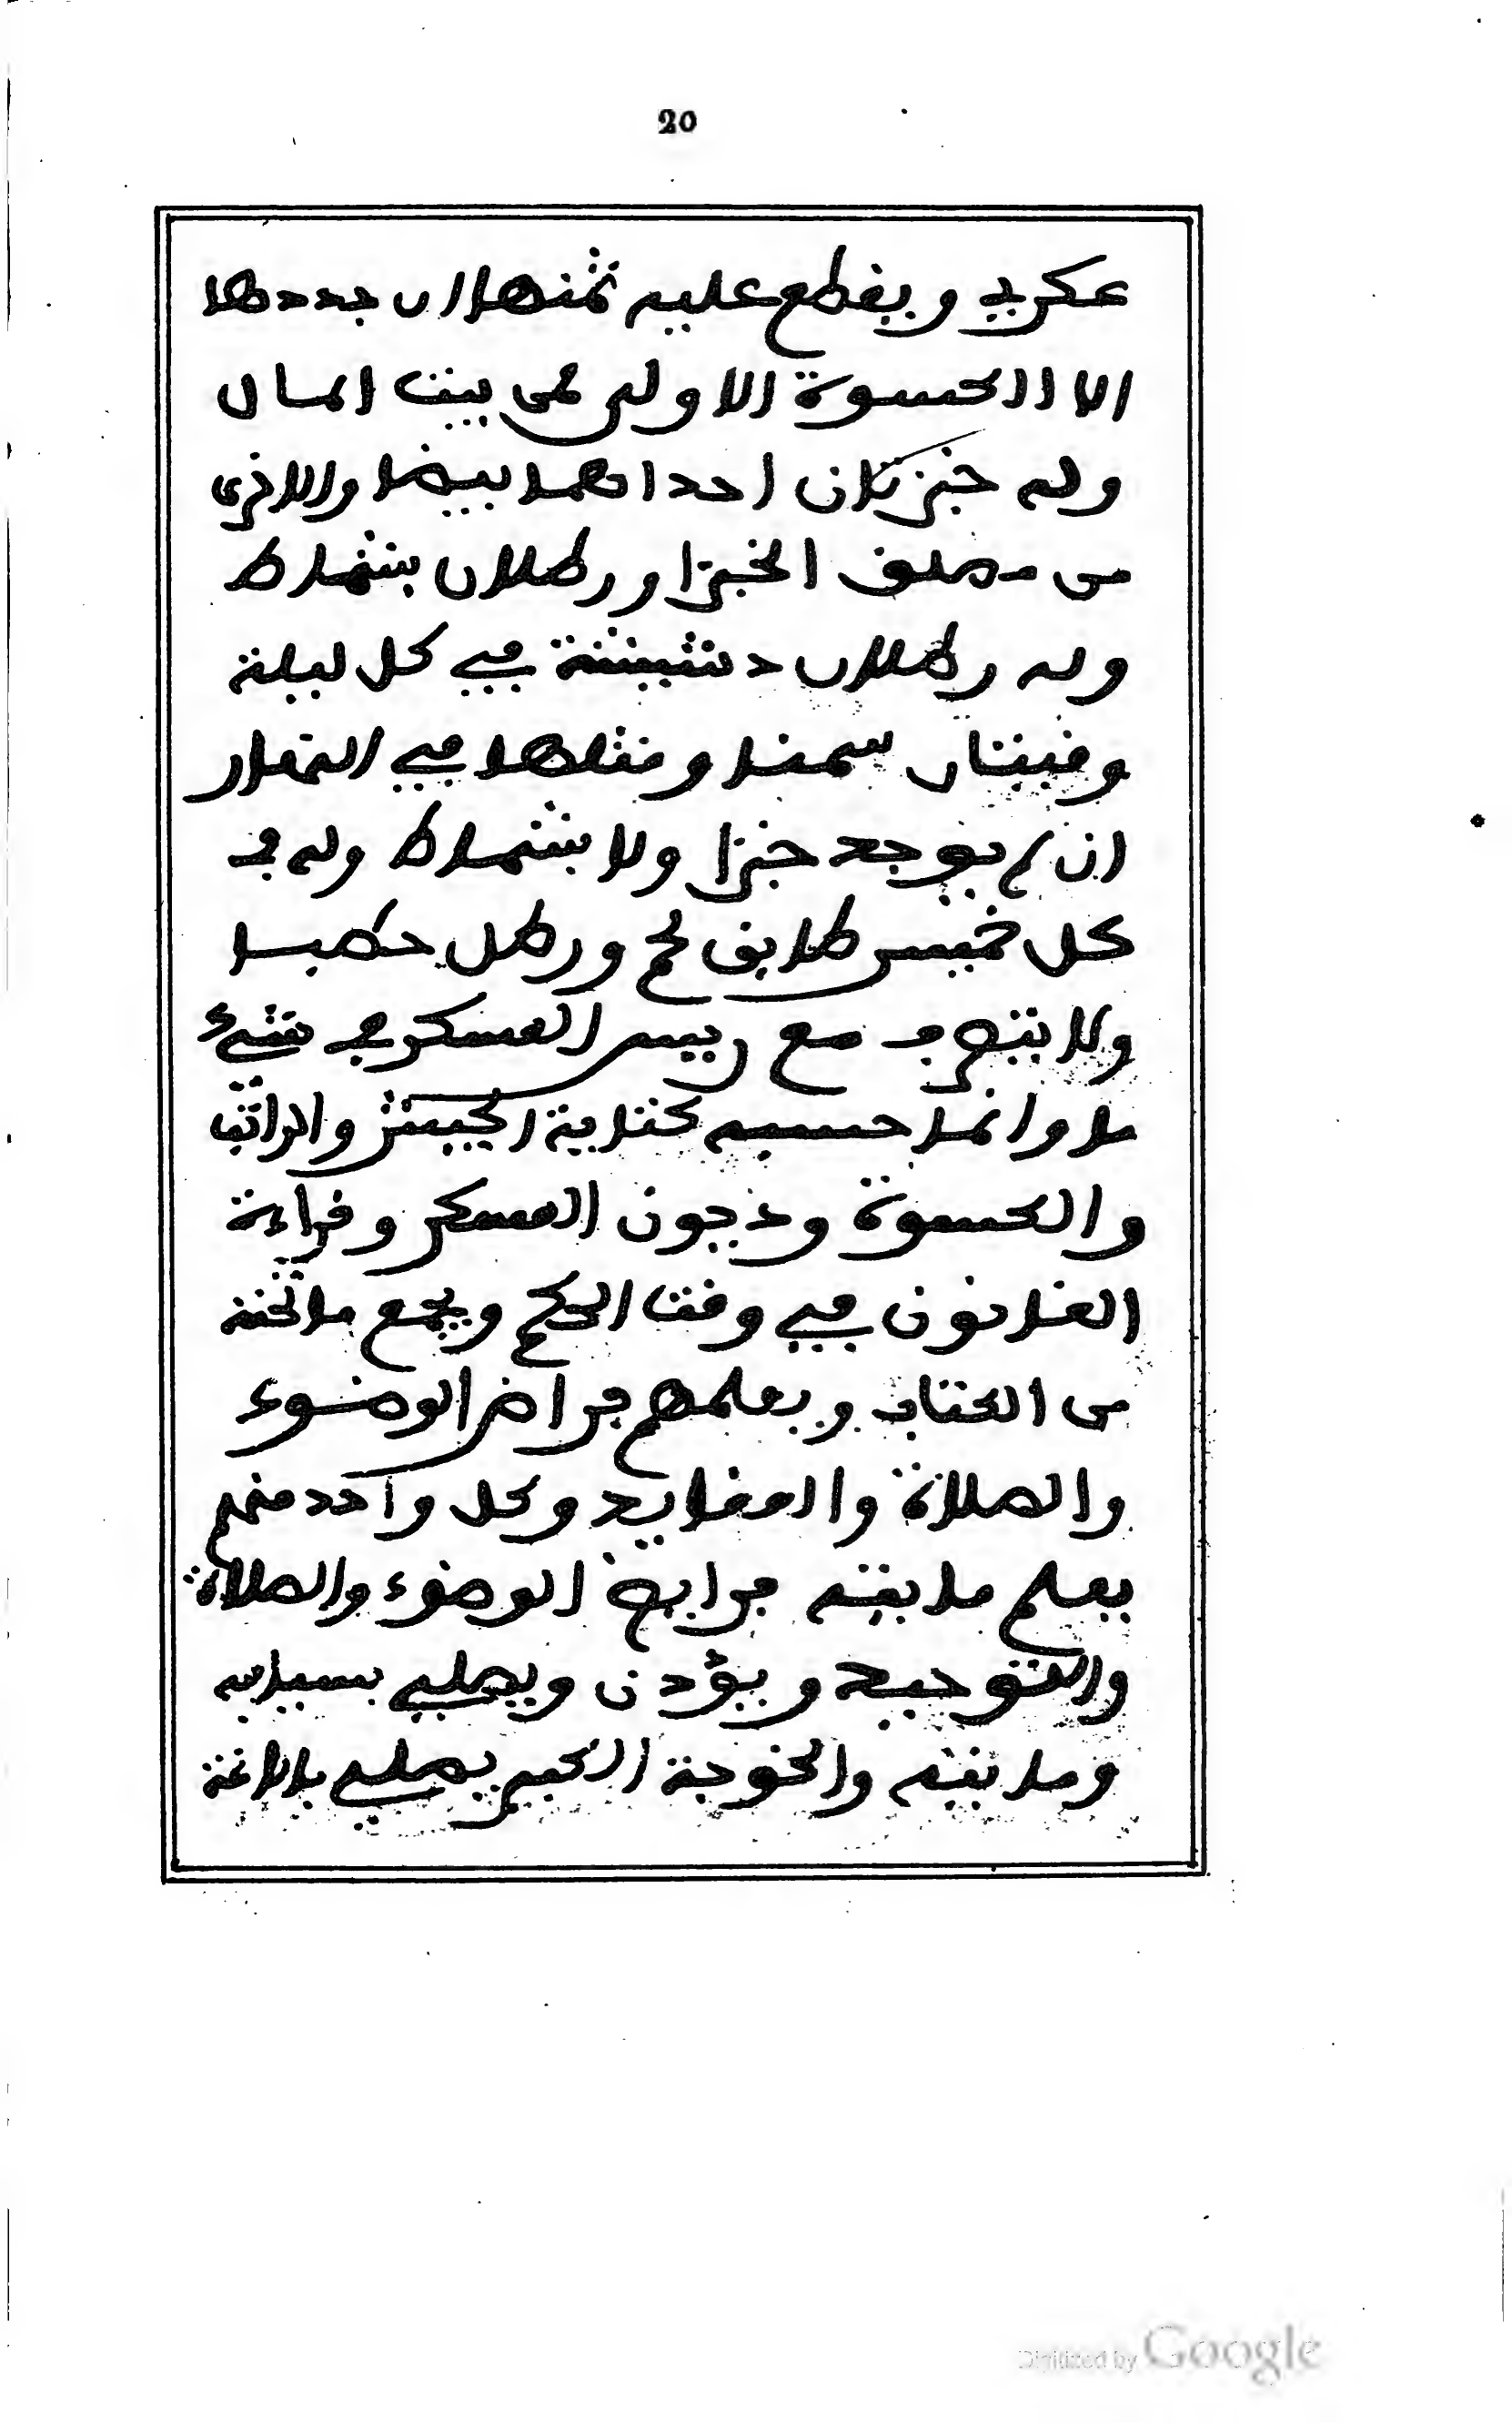 20
عكري ويقطع عليه ثمنها ان جددها
الا الكسوة الاولى فمن بيت المال
وله خبزتان احداهما بيضا والاخرى
من مطلق الخبز او رطلان بشماط
وله رطلان دشيشة في كل ليلة
وقيتان سمنا ومثلها في النهار
ان لم يوجد خبزا ولا بشماط وله في
كل خميس طابق لحم ورطل حطبا
ولا يتصرف مع رييس العسكر في شيء
ما وانما حسبه كتابة الجيش والراتب
والكسوة وديون العسكر وقراءة
القانون في وقت الحكم ويجمع ما تحته
من الكتاب ويعلمهم فرايض الوضوء
والصلاة والعقايد وكل واحد منهم
يعلم ما يته فرايض الوضوء والصلاة
والتوحيد ويؤذن ويصلي بسيافه
وما يته والخوجة الكبير يصلي بالاغة
Digitized by Google